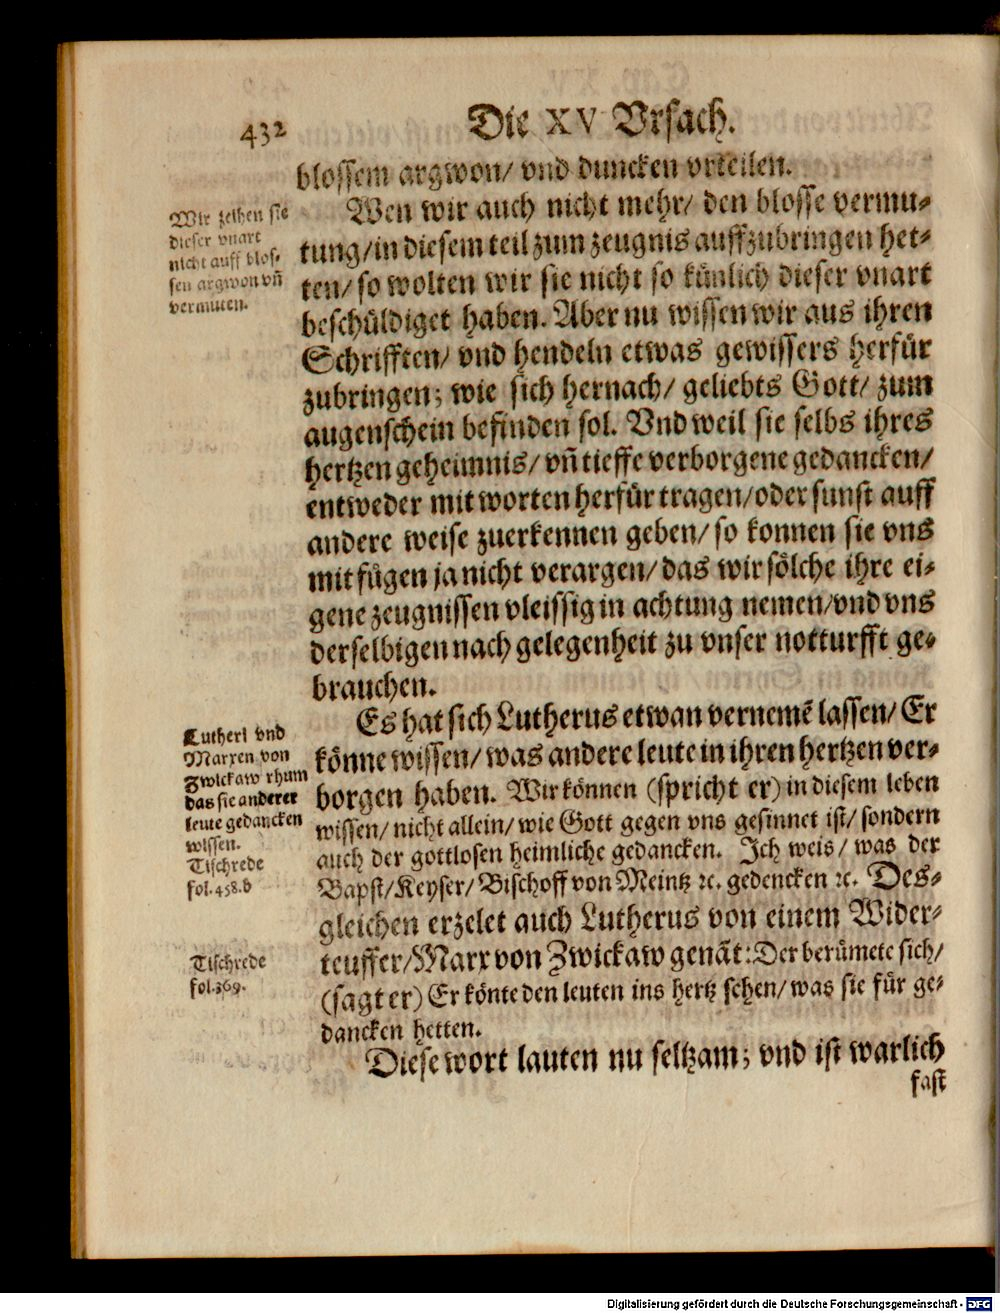 432
Die XV Vrsach.
blossem argwon/ vnd duncken vrteilen.
Wir zeihen sie
dieser vnart
nicht auff blos-
sen argwon vñ
vermuten.
Wen wir auch nicht mehr/ den blosse vermu-
tung/in diesem teil zum zeugnis auffzubringen het-
ten/ so wolten wir sie nicht so künlich dieser vnart
beschüldiget haben. Aber nu wissen wir aus ihren
Schrifften/ vnd hendeln etwas gewissers herfür
zubringen; wie sich hernach/ geliebts Gott/ zum
augenschein befinden sol. Vnd weil sie selbs ihres
hertzen geheimnis/ vñ tieffe verborgene gedancken/
entweder mit worten herfür tragen/oder sunst auff
andere weise zuerkennen geben/ so konnen sie vns
mit fügen ja nicht verargen/ das wir sölche ihre ei-
gene zeugnissen vleissig in achtung nemen/vnd vns
derselbigen nach gelegenheit zu vnser notturfft ge-
brauchen.
Lutheri vnd
Marxen von
Zwickaw rhum
das sie anderer
leute gedancken
wissen.
Tischrede
fol.458.b
Es hat sich Lutherus etwan vernemẽ lassen/ Er
könne wissen/ was andere leute in ihren hertzen ver-
borgen haben. Wir können (spricht er) in diesem leben
wissen/ nicht allein/ wie Gott gegen vns gesinnet ist/ sondern
auch der gottlosen heimliche gedancken. Ich weis/ was der
Bapst/Keyser/ Bischoff von Meintz ꝛc. gedencken ꝛc. Des-
gleichen erzelet auch Lutherus von einem Wider-
teuffer/Marx von Zwickaw genãt: Der berümete sich/
(sagt er) Er könte den leuten ins hertz sehen/ was sie für ge-
dancken hetten.
Tischrede
fol.369.
Diese wort lauten nu seltzam; vnd ist warlich
fast
Digitalisierung gefördert durch die Deutsche Forschungsgemeinschaft - DFG